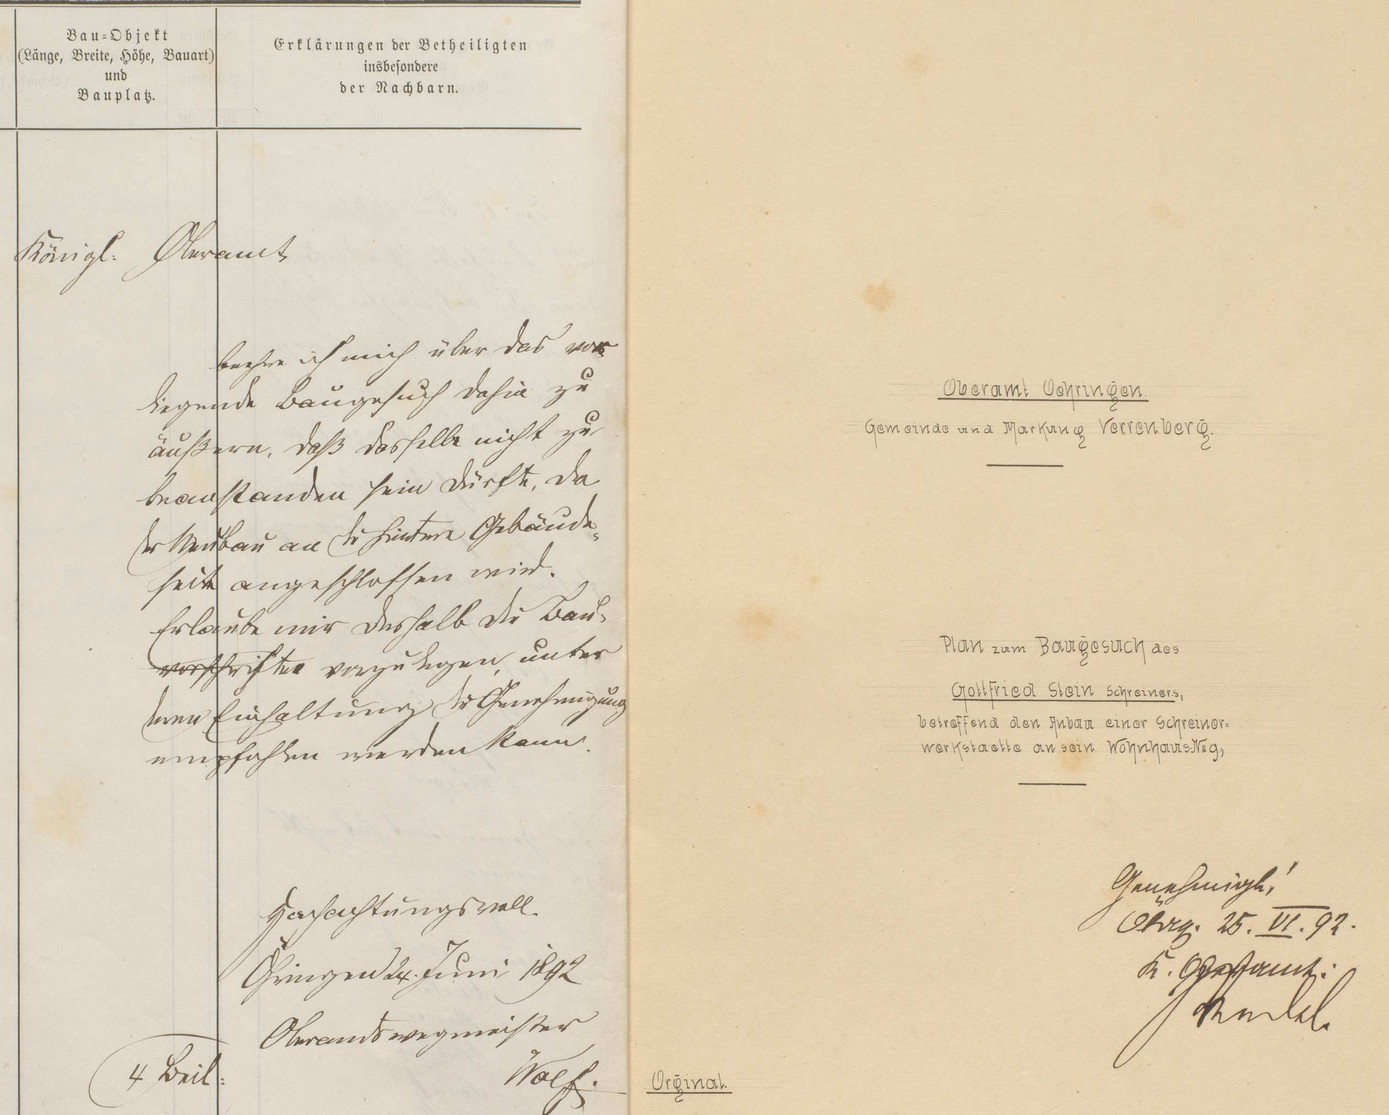 Bau-Objekt
(Länge, Breite, Höhe, Bauart)
und
Bauplatz.
Erklärungen der Betheiligten
insbesondere
der Nachbarn.
Königl: Oberamt
beehre ich mich über das vor
liegende Baugesuch dahin zu
äußern, daß dasselbe nicht zu
beanstanden sein dürfte, da
der Neubau an die hintere Gebäude-
seite angeschlossen wird.
Erlaube mir deshalb die Bau-
vorschriften vorzulegen, unter
deren Einhaltung die Genehmigung
empfohlen werden kann.
Hochachtungsvoll.
Öhringen 24. Juni 1892
Oberamtswegmeister
Wolf.
4 Beil:
Oberamt Oehringen
Gemeinde und Markung Verrenberg.
Plan zum Baugesuch des
Gottfried Stein Schreiners,
betreffend den Anbau einer Schreiner=
werkstaette an sein Wohnhaus
Genehmigt!
Öhrg. 25. VI. 92.
K. Oberamt:
Orginal.